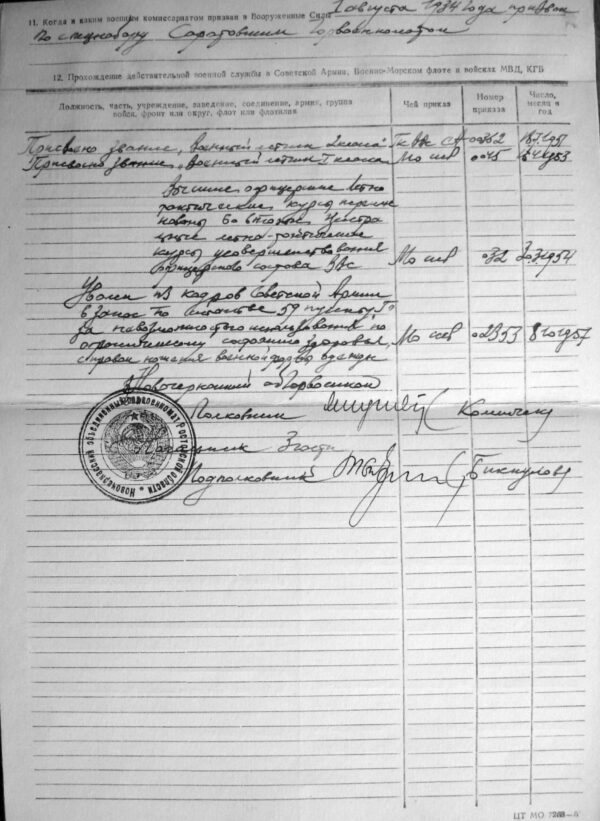 11. Когда и каким военным комиссариатом призван в Вооруженные Силы 1 августа 1934 года призван
по спецнабору Саратовским Горвоенкоматом
12. Прохождение действительной военной службы в Советской Армии, Военно-Морском флоте и войсках МВД, КГБ
Должность, часть, учреждение, заведение, соединение, армия, группа
войск, фронт или округ, флот или флотилия
Чей приказ
Номер
приказа
Число,
месяц и
год
Присвоено звание „Военный летчик 2 класса" ВВС СА 0362
Присвоено звание „Военный летчик I класса Мо ссср 0045 1953
Высшие офицерские летно
тактические курсы переиме
нованы во вторые Центра
льные летно-тактические
курсы усовершенствования
офицерского состава ВВС Мо ссср 032 1954
Уволен из кадров Советской Армии
в запас по статье 59 пункту
за невозможностью использования по
ограниченному состоянию здоровья, Мо ссср 02353 8 1957
с правом ношения военной формы одежды
Новочеркасский обгорвоенком
Полковник
Начальник 3 части
Подполковник
Новочеркасский объединенный горвоенкомат Ростовской области
ЦТ МО